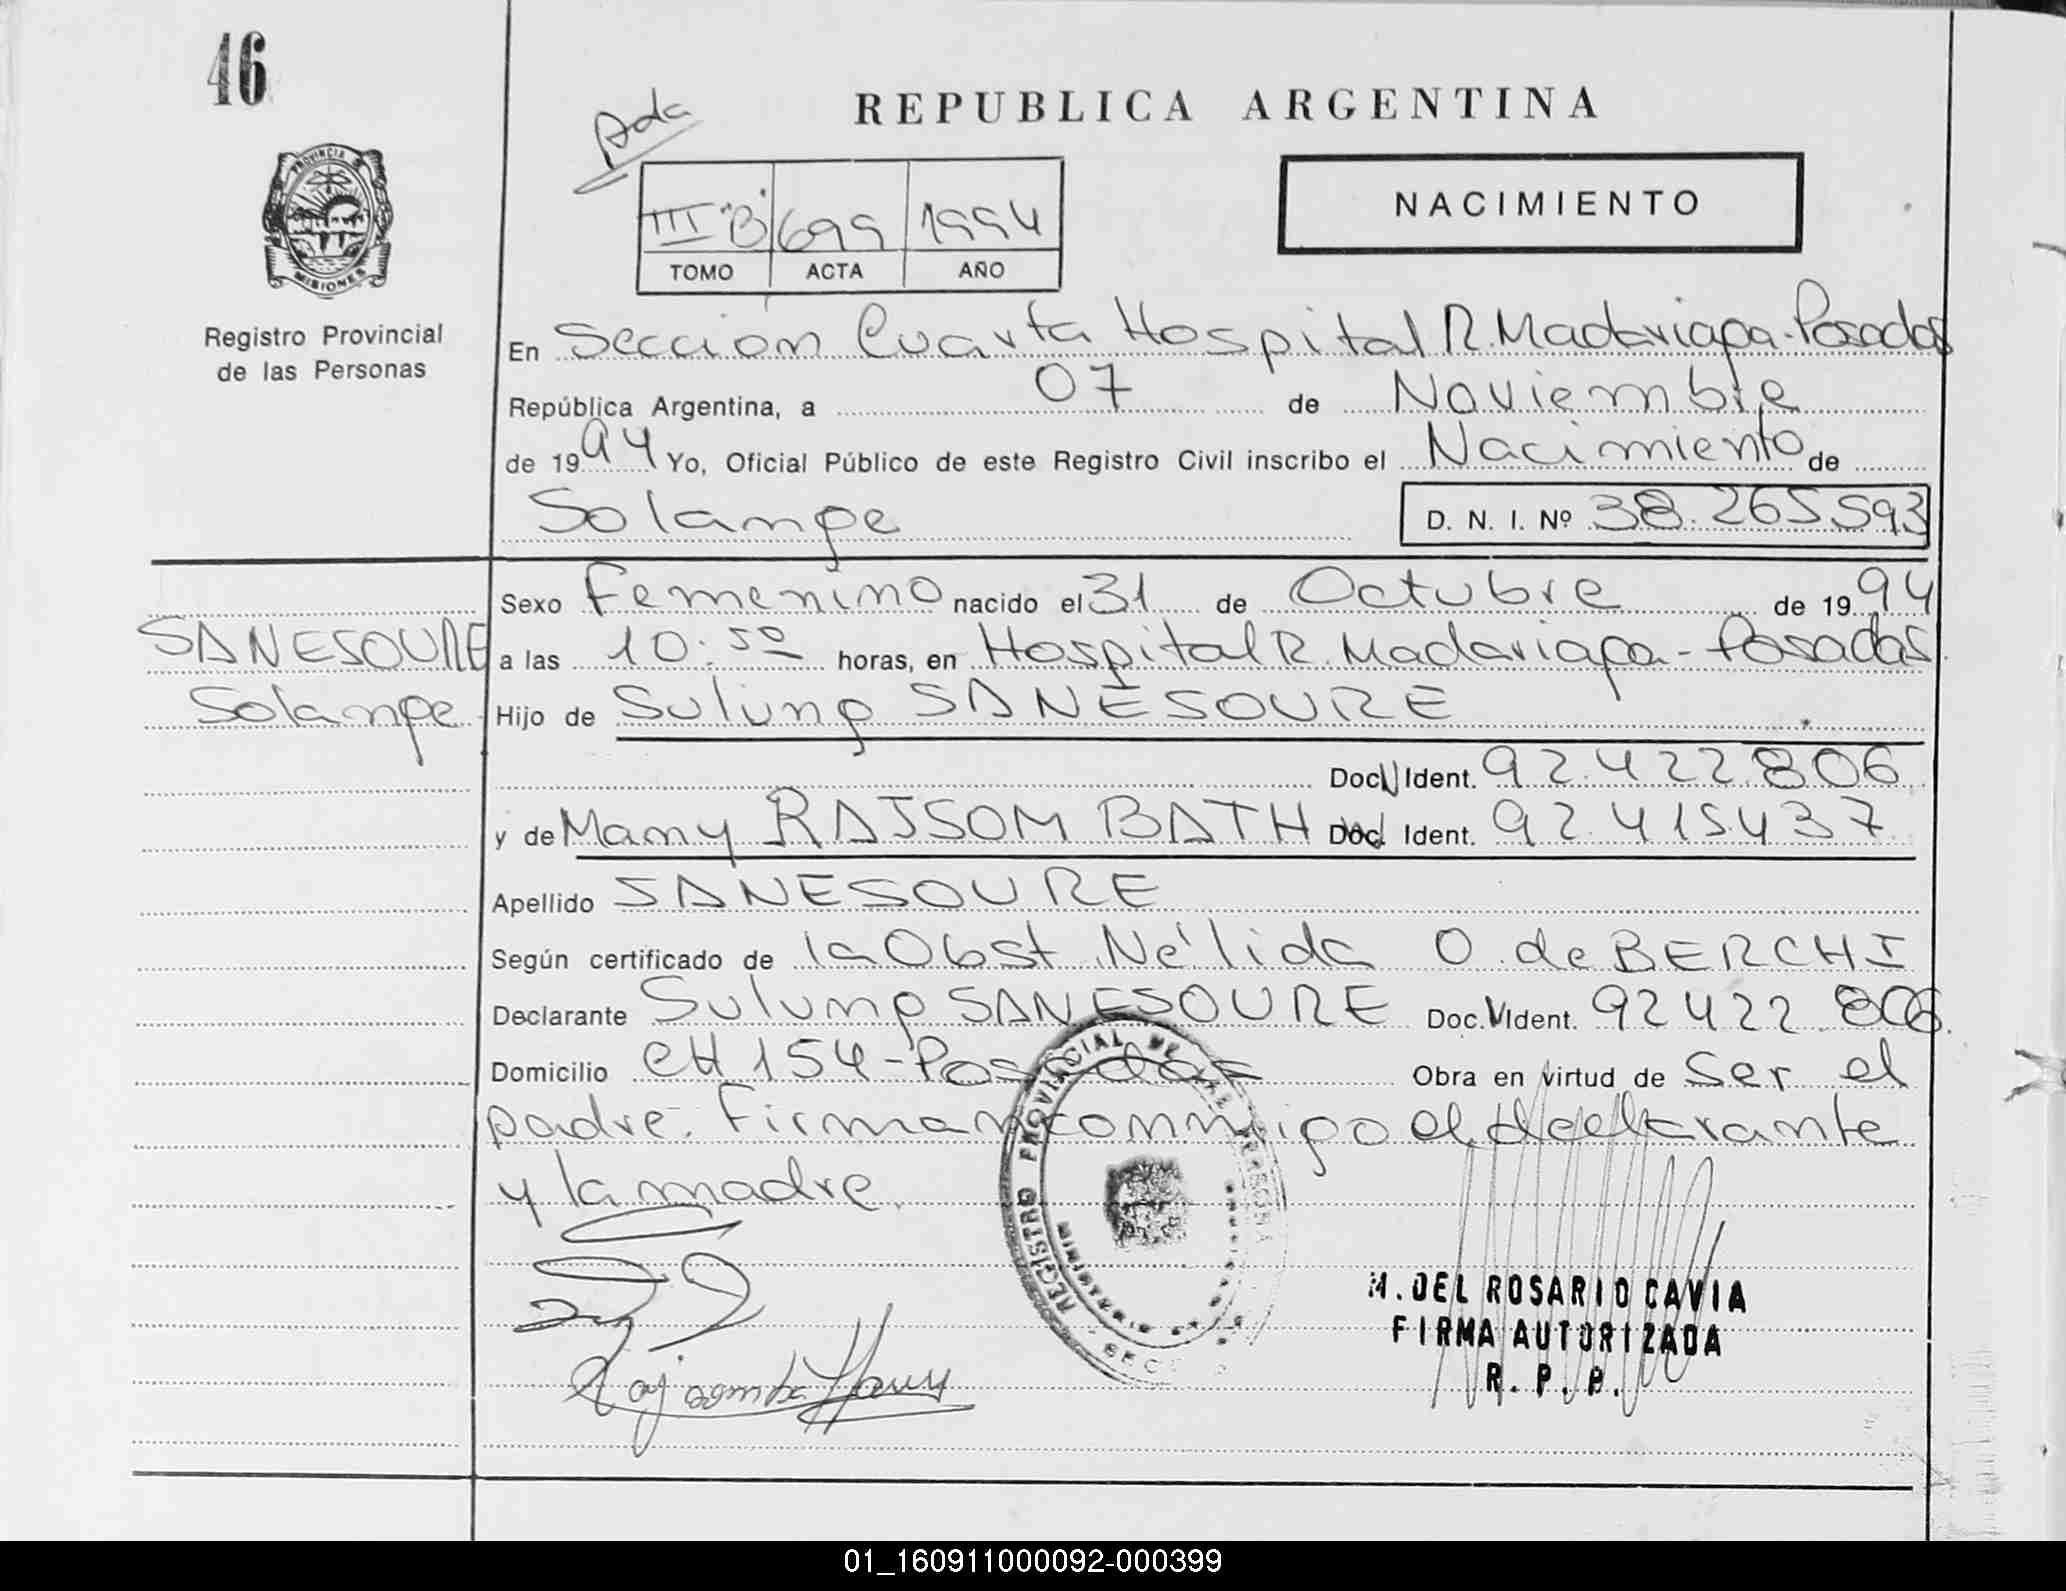 46
Ada
REPUBLICA ARGENTINA
PROVINCIA DE
MISIONES
III "B" 699 1994
TOMO ACTA AÑO
NACIMIENTO
Registro Provincial
de las Personas
En Sección Cuarta Hospital R. Madariaga-Posadas
República Argentina, a 07 de Noviembre
de 1994 Yo, Oficial Público de este Registro Civil inscribo el Nacimiento de
Solange D. N. I. Nº 38.265.593
SANESOURE
Solange
Sexo Femenino nacido el 31 de Octubre de 1994
a las 10:50 horas, en Hospital R. Madariaga-Posadas
Hijo de Sulung SANESOURE
Doc. Ident. 92.422.806
y de Many RAJSOM BATH Doc. Ident. 92.415.437
Apellido SANESOURE
Según certificado de la Obst. Nélida O. de BERCHI
Declarante Sulung SANESOURE Doc. Ident. 92422 806
Domicilio CH 154-Posadas Obra en virtud de ser el
padre. Firman conmigo el declarante
y la madre.
REGISTRO PROVINCIAL DE LAS PERSONAS
M. DEL ROSARIO CAVIA
FIRMA AUTORIZADA
R. P. P.
01_160911000092-000399